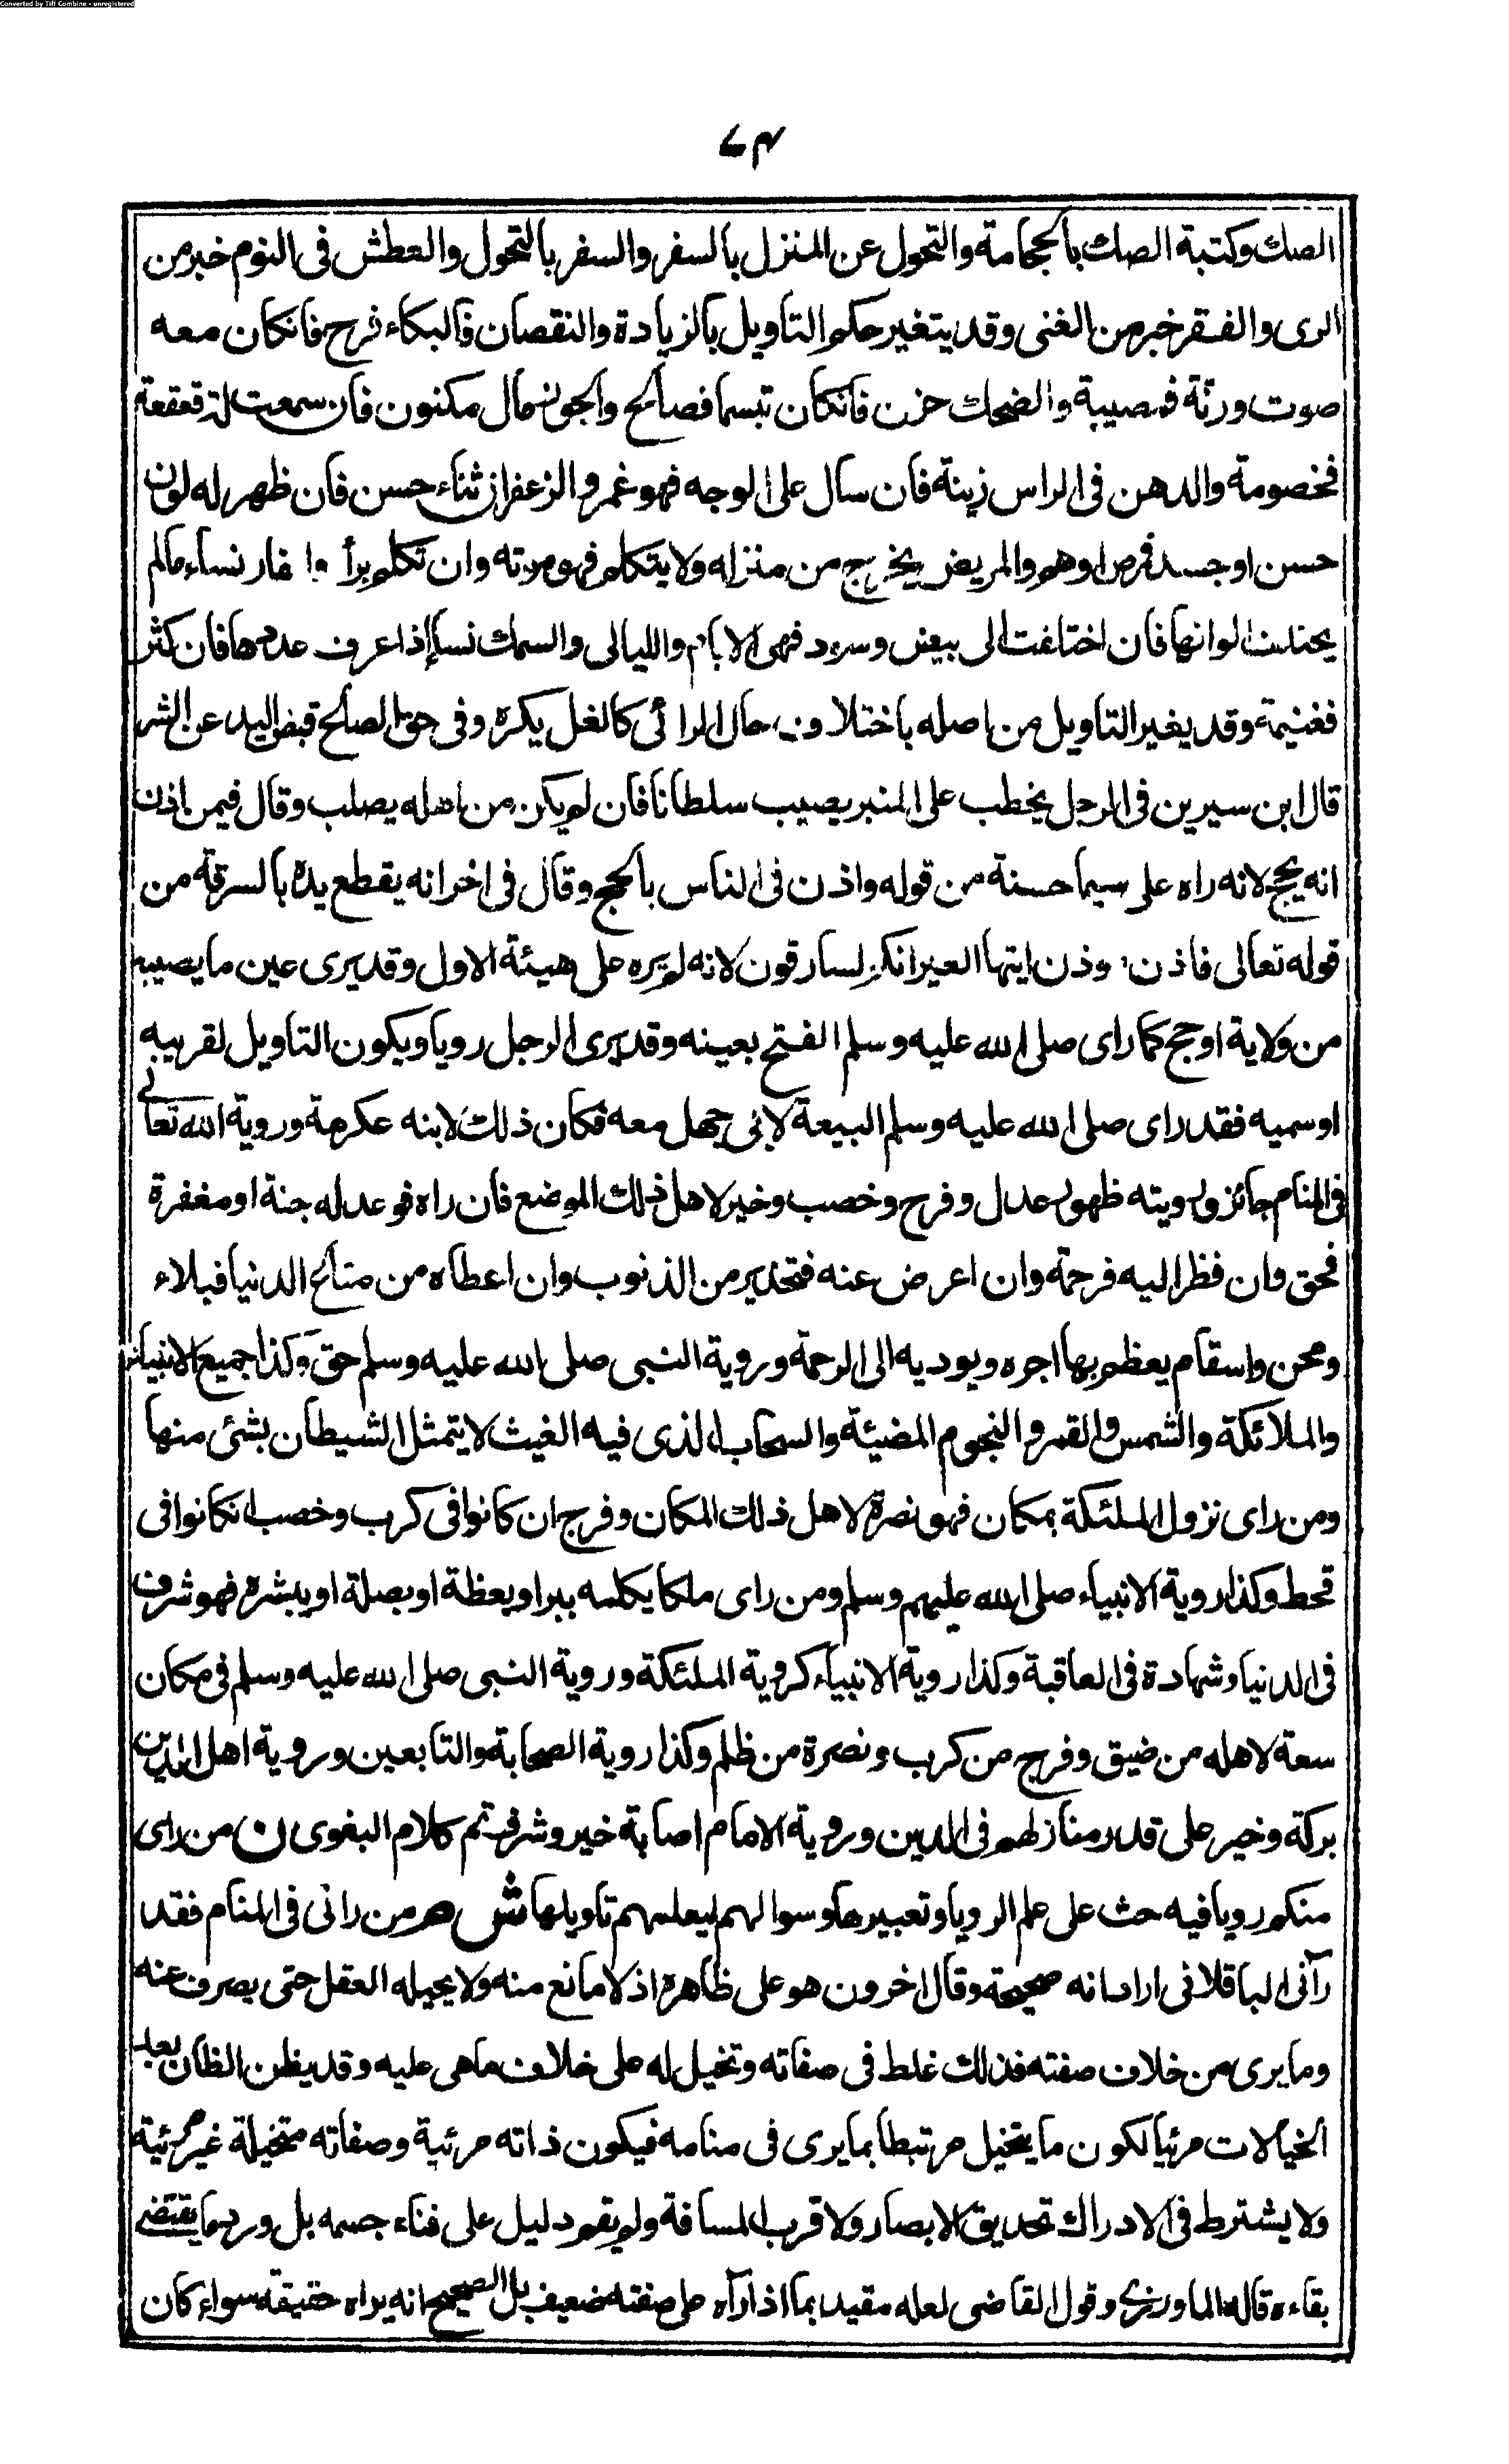 Converted by Tiff Combine - unregistered
٧٣
الصك وكتبة الصك بالحجامة والتحول عن المنزل بالسفر والسفر بالتحول والعطش فى النوم خير من
الرى والفقر خير من الغنى وقد يتغير حكم التاويل بالزيادة والنقصان فالبكاء فرح فانكان معه
صوت ورنة فمصيبة والضحك حزن فانكان تبسما فصالح والجوز مال مكنون فان سمعت له قعقعة
فخصومة والدهن فى الراس زينة فان سال على الوجه فهو غم والزعفران ثناء حسن فان ظهر له لون
حسن او جسد فمرض او هم والمريض يخرج من منزله ولا يتكلم فهو موته وان تكلم برأ والفار نساء مالم
يختلف الوانها فان اختلفت الى بيض وسود فهى الايام والليالى والسمك نساء إذا عرف عددها فان كثر
فغنيمة وقد يغير التاويل من اصله باختلاف حال الرائى كالغل يكره وفى حق الصالح قبض اليد عن الشر
قال ابن سيرين فى الرجل يخطب على المنبر يصيب سلطانا فان لم يكن من اهله يصلب وقال فيمن اذن
انه يحج لانه راه على سيما حسنة من قوله واذن فى الناس بالحج وقال فى اخر انه يقطع يده بالسرقة من
قوله تعالى فاذن موذن ايتها العير انكم لسارقون لانه لم يره على هيئة الاول وقد يرى عين ما يصيبه
من ولاية او حج كما راى صلى الله عليه وسلم الفتح بعينه وقد يرى الرجل رويا ويكون التاويل لقريبه
او سميه فقد راى صلى الله عليه وسلم البيعة لابى جهل معه فكان ذلك لابنه عكرمة وروية الله تعالى
فى المنام جائز ورويته ظهور عدل وفرح وخصب وخير لاهل ذلك الموضع فان راه فوعد له جنة او مغفرة
فحق وان نظر اليه فرحمة وان اعرض عنه فتحذير من الذنوب وان اعطاه من متاع الدنيا فبلاء
ومحن واسقام يعظم بها اجره ويوديه الى الرحمة وروية النبى صلى الله عليه وسلم حق وكذا جميع الانبياء
والملائكة والشمس والقمر والنجوم المضيئة والسحاب الذى فيه الغيث لا يتمثل الشيطان بشئ منها
ومن راى نزول الملئكة بمكان فهو نصرة لاهل ذلك المكان وفرج ان كانوا فى كرب وخصب انكانوا فى
قحط وكذا روية الانبياء صلى الله عليهم وسلم ومن راى ملكا يكلمه ببر او يعظة او بصلة او يبشره فهو شرف
فى الدنيا وشهادة فى العاقبة وكذا روية الانبياء كروية الملئكة وروية النبى صلى الله عليه وسلم فى مكان
سعة لاهله من ضيق وفرج من كرب ونصرة من ظلم وكذا روية الصحابة والتابعين وروية اهل الدين
بركة وخير على قدر منازلهم فى الدين وروية الامام اصابة خير وشرف تم كلام البغوى ن من راى
منكم رويا فيه حث على علم الرويا وتعبيرها وسوالهم ليعلمهم تاويلها ش هر من رانى فى المنام فقد
رآنى الباقلانى اراد انه صحيحة وقال اخرون هو على ظاهره اذ لا مانع منه ولا يحيله العقل حتى يصرف عنه
وما يرى من خلاف صفته فذلك غلط فى صفاته وتخيل له على خلاف ماهى عليه وقد يظن الظان بعد
الخيالات مرئيا لكون ما يتخيل مرتبطا بما يرى فى منامه فيكون ذاته مرئية وصفاته متخيلة غير مرئية
ولا يشترط فى الادراك تحديق الابصار ولا قرب المسافة ولم يقم دليل على فناء جسمه بل ورد ما يقتضى
بقاءه قاله الماوردى وقول القاضى لعله مقيد بما اذا رآه على صفته ضعيف بل الصحيح انه يراه حقيقة سواء كان